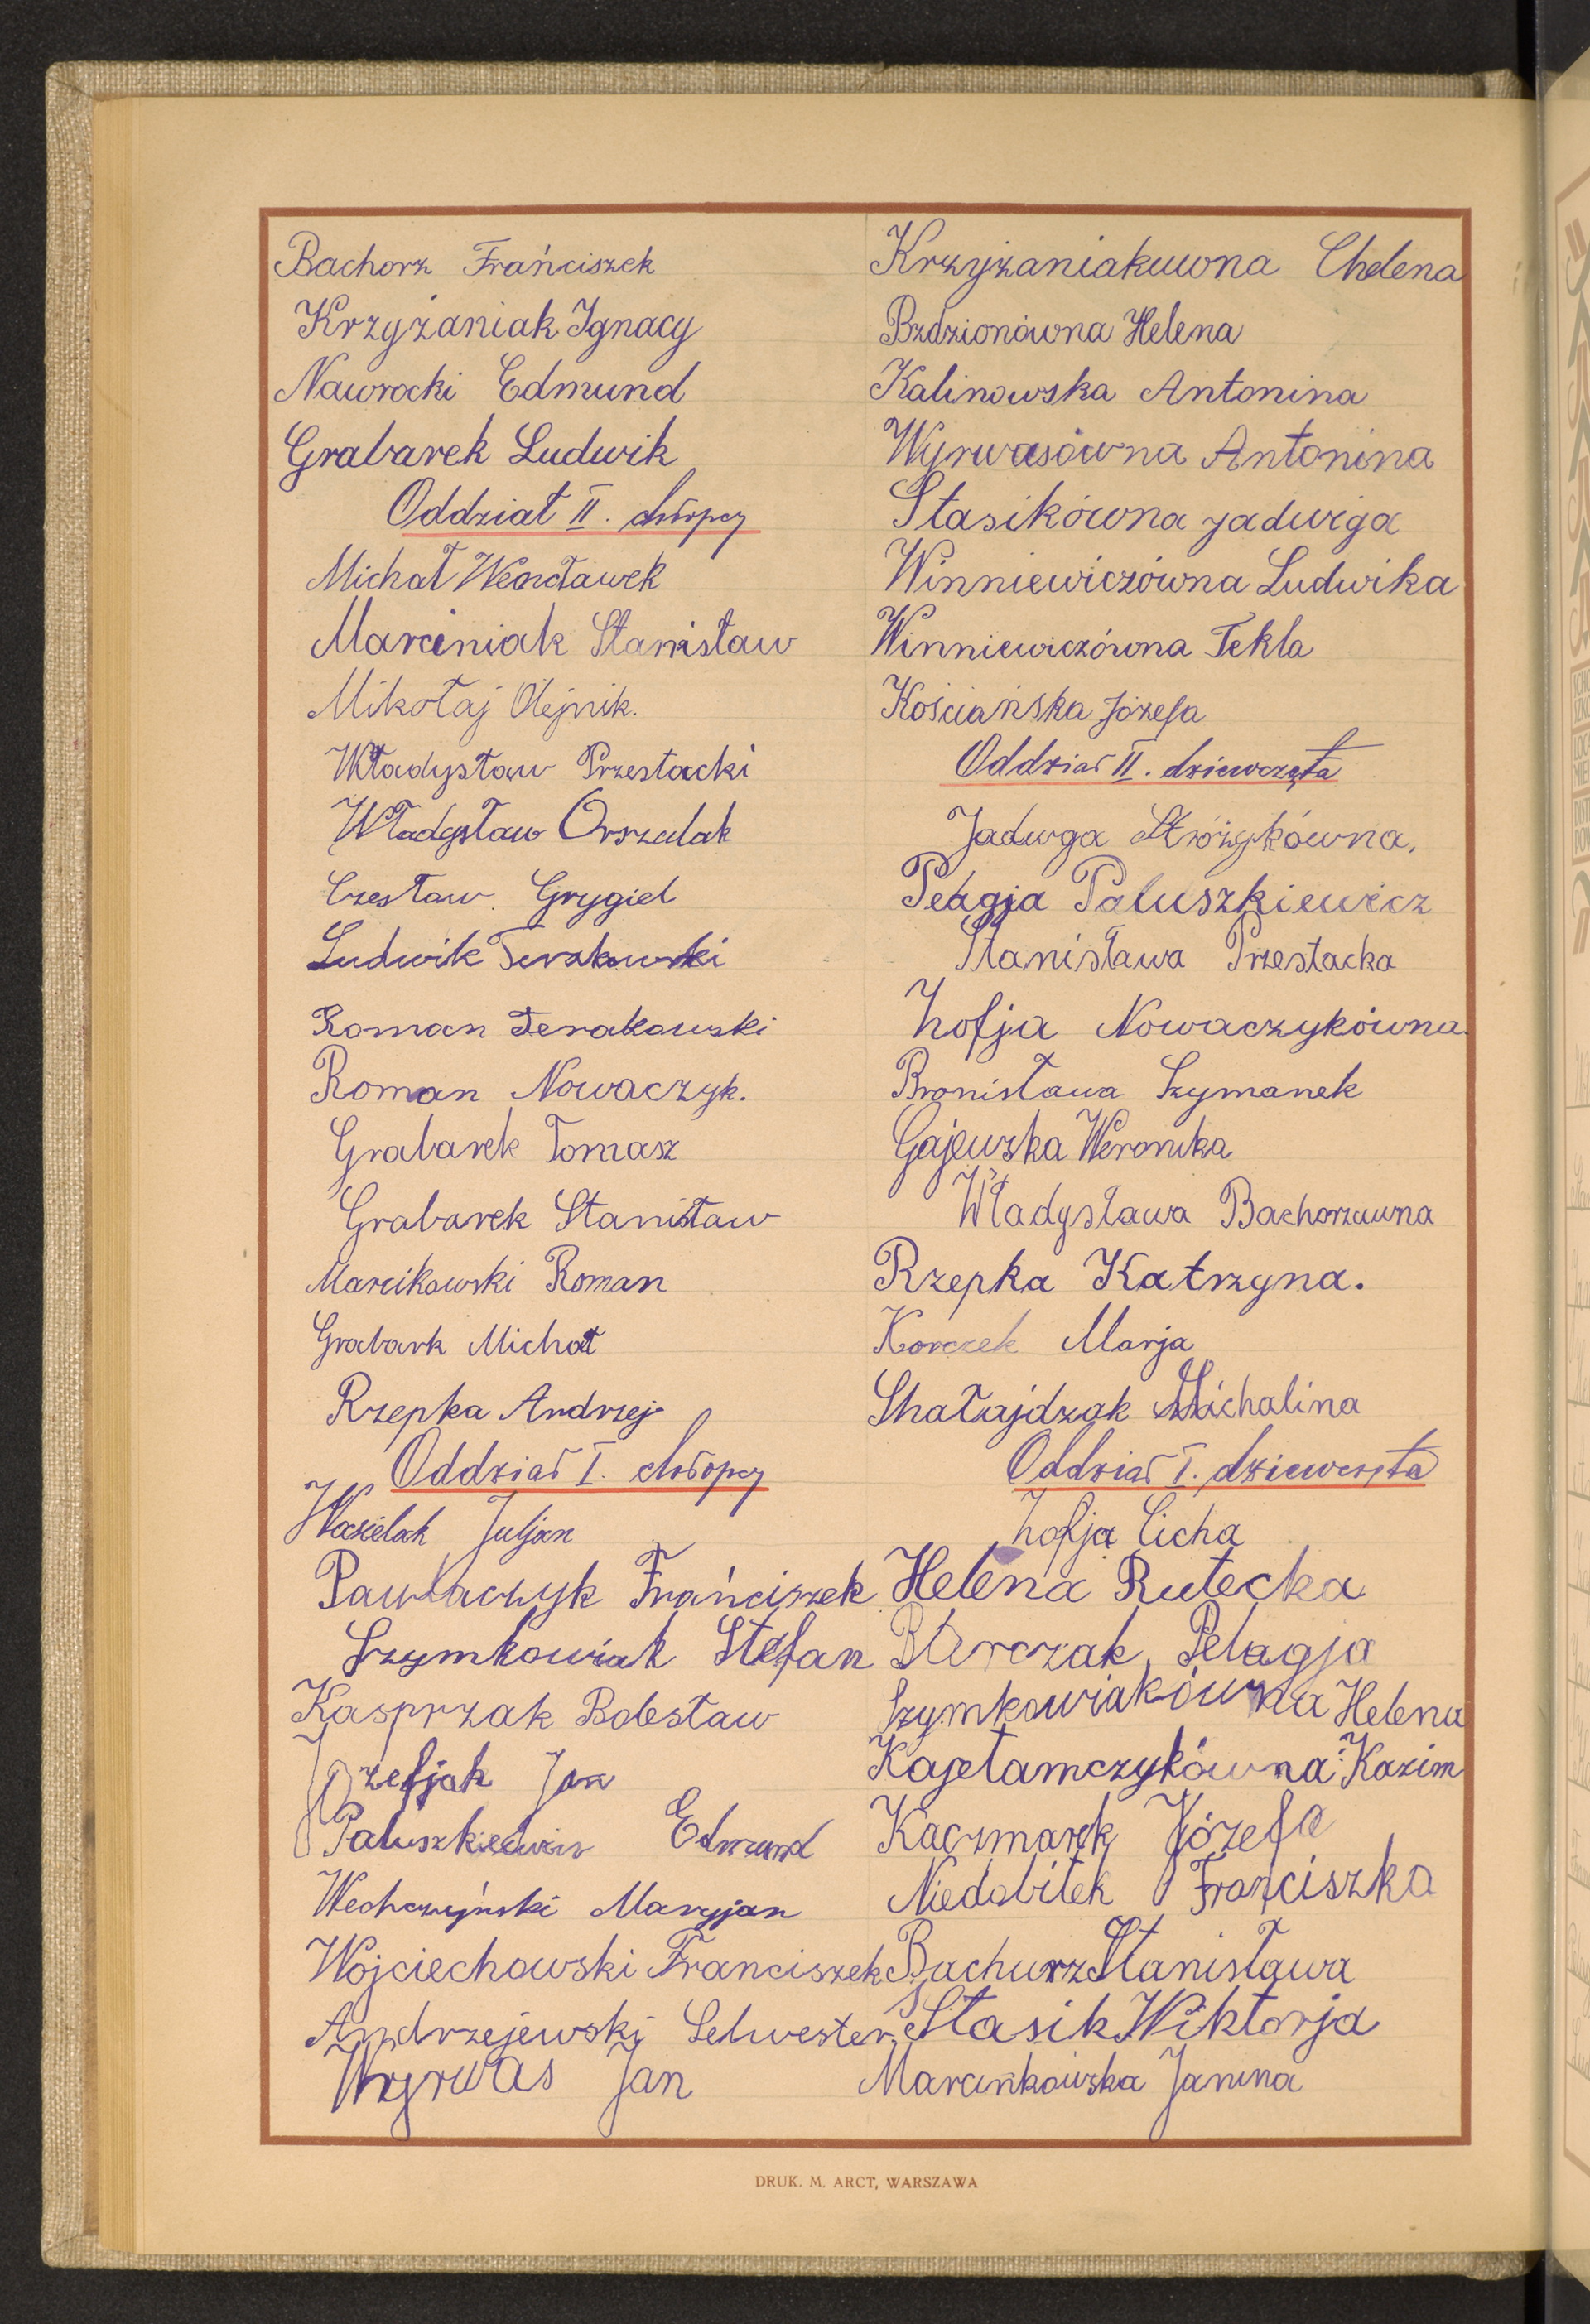 Bachorz Frańciszek
Krzyżaniak Ignacy
Nawrocki Edmund
Grabarek Ludwik
Oddział II. chłopcy
Michał Wencławek
Marciniak Stanisław
Mikołaj Olejnik.
Władysław Przestacki
Władysław Orszulak
Czesław Grygiel
Ludwik Terakowski
Roman Terakowski
Roman Nowaczyk.
Grabarek Tomasz
Grabarek Stanisław
Marcikowski Roman
Grabark Michał
Rzepka Andrzej
Oddział I. chłopcy
Wasielak Juljan
Pawlaczyk Frańciszek
Szymkowiak Stefan
Kasprzak Bolesław
Józefjak Jan
Paluszkiewicz Edmund
Wechczyński Maryjan
Wojciechowski Franciszek
Andrzejewski Selwester
Wyrwas Jan
Krzyżaniakuwna Chelena
Bzdzionówna Helena
Kalinowska Antonina
Wyrwasówna Antonina
Stasikówna Jadwiga
Winniewiczówna Ludwika
Winniewiczówna Tekla
Kościańska Józefa
Oddział II. dziewczęta
Jadwga Stróżykówna.
Pelagja Paluszkiewicz
Stanisława Przestacka
Zofja Nowaczykówna
Bronisława Szymanek
Gajewska Weronika
Władysława Bachorzuwna
Rzepka Katrzyna.
Korczek Marja
Shatajdzak Michalina
Oddział I. dziewczęta
Zofja Cicha
Helena Rutecka
Pelagja
Szymkowiakówna Helena
Kajetamczykówna: Kazim
Kaczmarek Józefa
Niedobitek Franciszka
Bachurz Stanisława
Stasik Wiktorja
Marcinkowska Janina
DRUK. M. ARCT, WARSZAWA